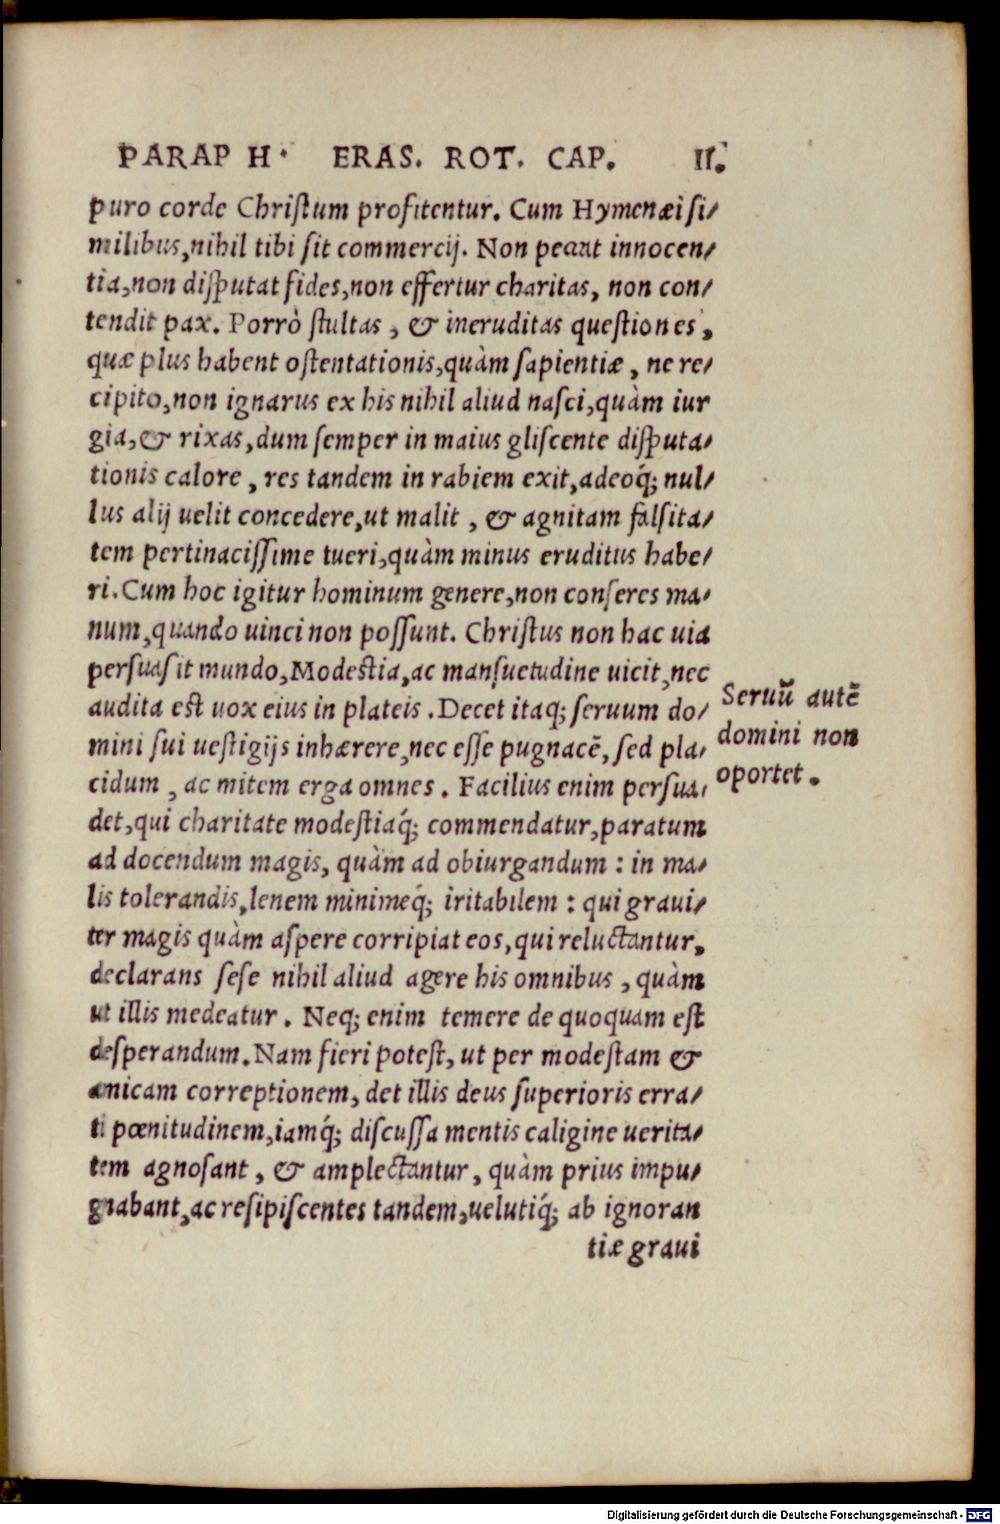 PARAPH. ERAS. ROT. CAP. II.
puro corde Chriſtum profitentur. Cum Hymenæi ſi⸗
milibus, nihil tibi ſit commercij. Non peccat innocen⸗
tia, non diſputat fides, non effertur charitas, non con⸗
tendit pax. Porrò ſtultas, & ineruditas queſtiones,
quæ plus habent oſtentationis, quàm ſapientiæ, ne re⸗
cipito, non ignarus ex his nihil aliud naſci, quàm iur
gia, & rixas, dum ſemper in maius gliſcente diſputa⸗
tionis calore, res tandem in rabiem exit, adeoq́; nul⸗
lus alij uelit concedere, ut malit, & agnitam falſita⸗
tem pertinaciſſime tueri, quàm minus eruditus habe⸗
ri. Cum hoc igitur hominum genere, non conſeres ma⸗
num, quando uinci non poſſunt. Chriſtus non hac uia
perſuaſit mundo, Modeſtia, ac manſuetudine uicit, nec
audita eſt uox eius in plateis. Decet itaq; ſeruum do⸗
mini ſui ueſtigijs inhærere, nec eſſe pugnacē, ſed pla⸗
cidum, ac mitem erga omnes. Facilius enim perſua⸗
det, qui charitate modeſtiaq́; commendatur, paratum
ad docendum magis, quàm ad obiurgandum : in ma⸗
lis tolerandis, lenem minimeq́; iritabilem : qui graui⸗
ter magis quàm aſpere corripiat eos, qui reluctantur,
declarans ſeſe nihil aliud agere his omnibus, quàm
ut illis medeatur. Neq; enim temere de quoquam eſt
deſperandum. Nam fieri poteſt, ut per modeſtam &
amicam correptionem, det illis deus ſuperioris erra⸗
ti pœnitudinem, iamq́; diſcuſſa mentis caligine uerita⸗
tem agnoſant, & amplectantur, quàm prius impu⸗
gnabant, ac reſipiſcentes tandem, uelutiq́; ab ignoran
tiæ graui
Seruū autē
domini non
oportet.
Digitalisierung gefördert durch die Deutsche Forschungsgemeinschaft - DFG